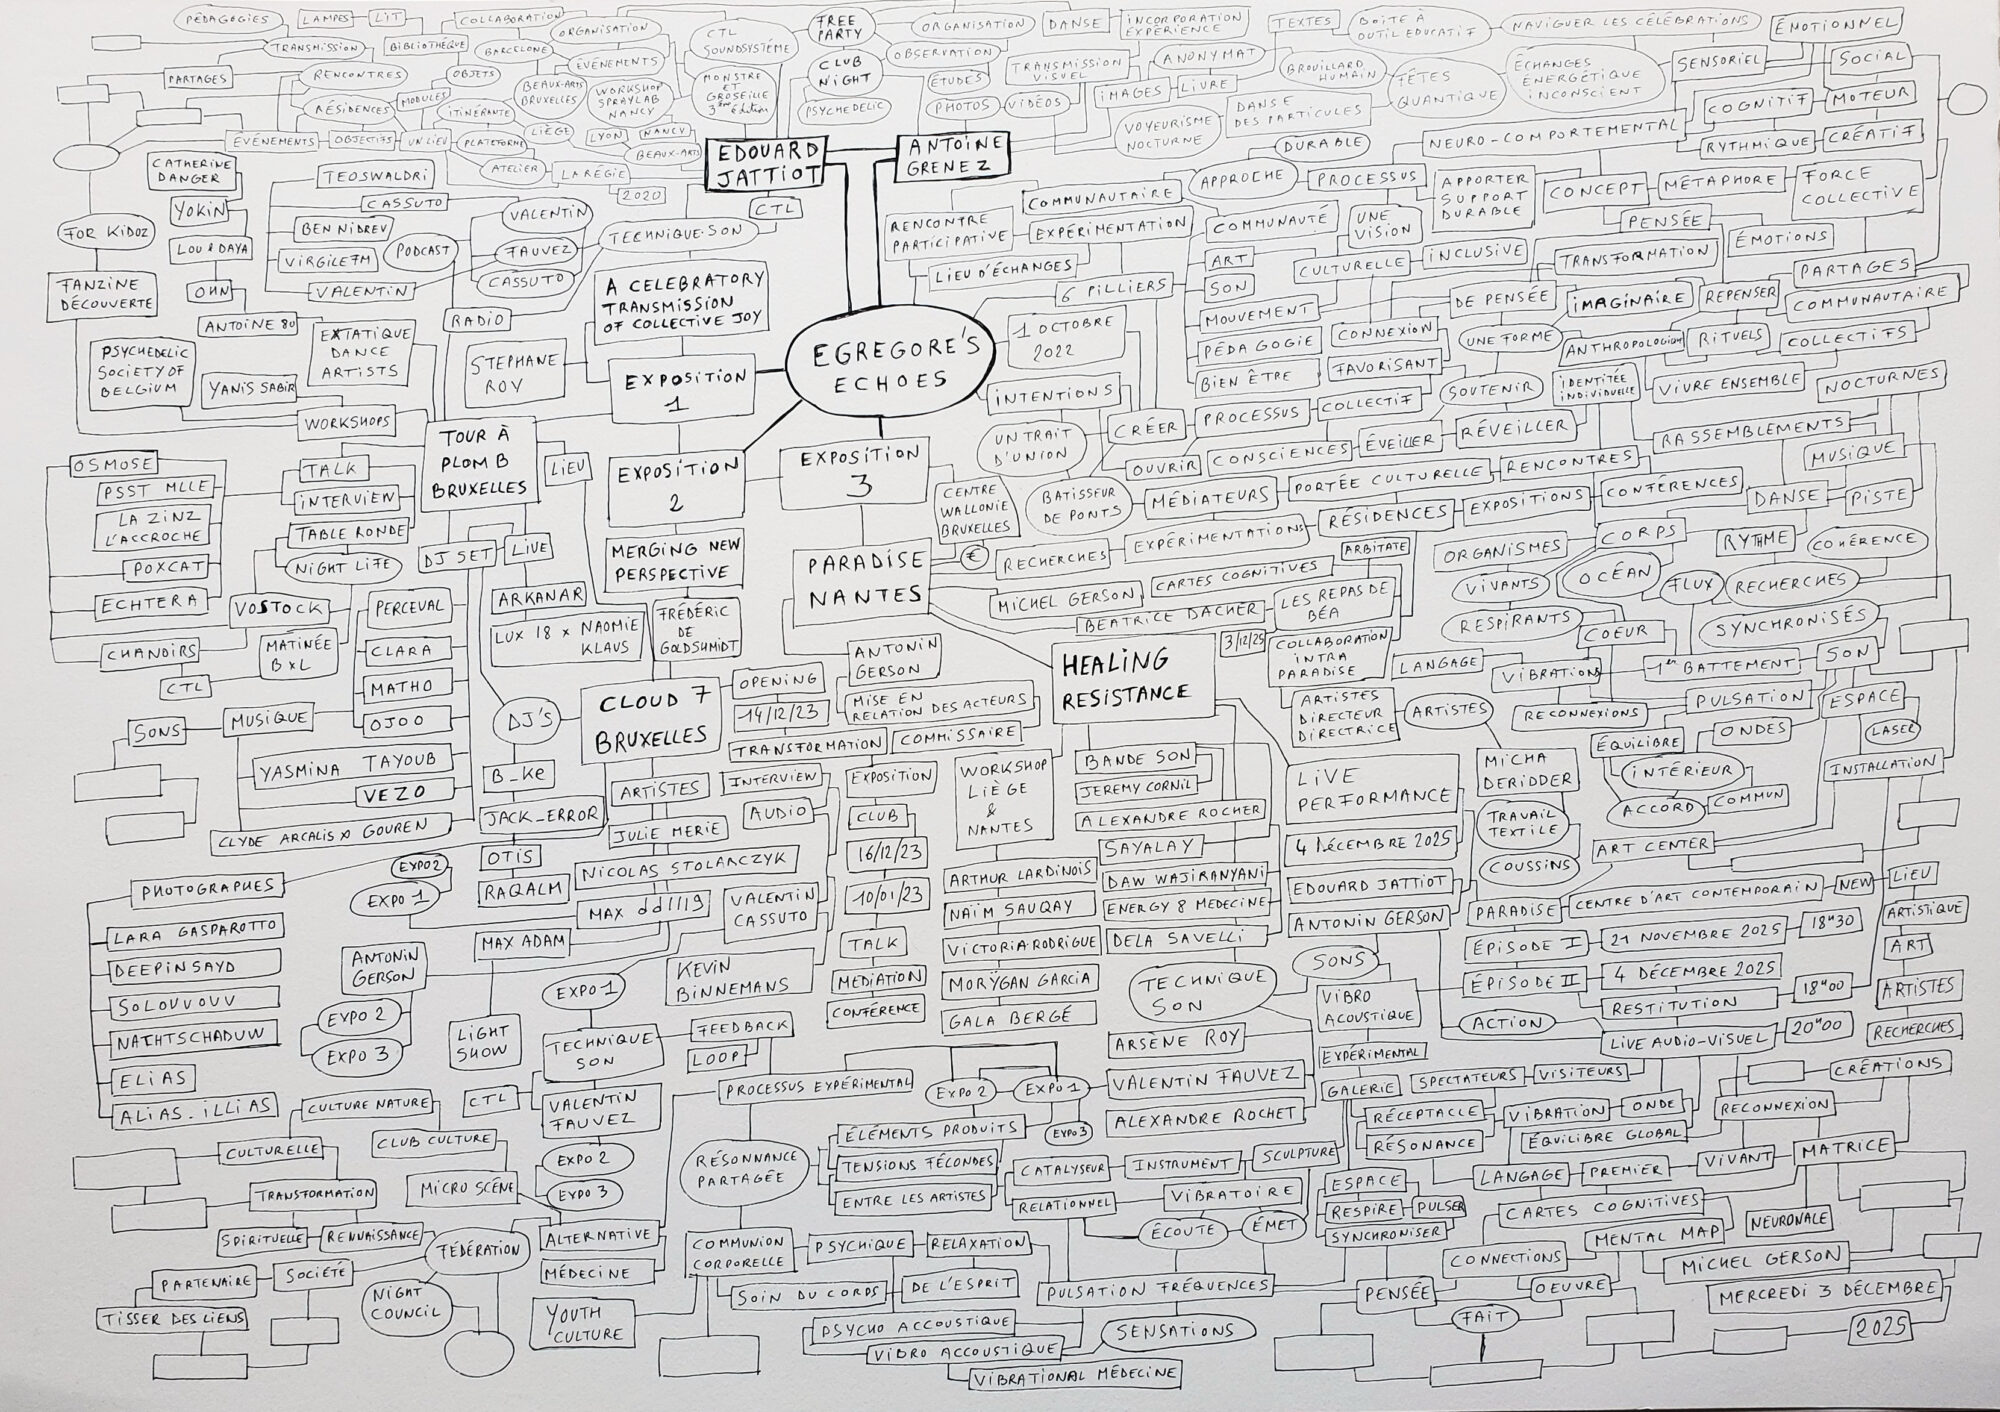 PÉDAGOGIES
LAMPES
LIT
COLLABORATION
ORGANISATION
CTL
SOUNDSYSTÈME
FREE
PARTY
ORGANISATION
DANSE
INCORPORATION
EXPÉRIENCE
TEXTES
BOITE À
OUTIL EDUCATIF
NAVIGUER LES CÉLÉBRATIONS
ÉMOTIONNEL
TRANSMISSION
BIBLIOTHÈQUE
BARCELONE
ÉVÉNEMENTS
CLUB
NIGHT
OBSERVATION
TRANSMISSION
VISUEL
ANONYMAT
BROUILLARD
HUMAIN
FÊTES
QUANTIQUE
ÉCHANGES
ÉNERGÉTIQUE
INCONSCIENT
SENSORIEL
SOCIAL
PARTAGES
RENCONTRES
OBJETS
BEAUX-ARTS
BRUXELLES
WORKSHOP
SPRAYLAB
NANCY
MONSTRE
ET
GROSEILLE
3ème édition
PSYCHEDELIC
ÉTUDES
PHOTOS
VIDÉOS
IMAGES
LIVRE
VOYEURISME
NOCTURNE
DANSE
DES PARTICULES
COGNITIF
MOTEUR
RÉSIDENCES
MODULES
ITINÉRANTE
LIÈGE
LYON
NANCY
BEAUX-ARTS
ÉVÉNEMENTS
OBJECTIFS
UN LIEU
PLATEFORME
ATELIER
LA RÉGIE
2020
EDOUARD
JATTIOT
ANTOINE
GRENEZ
DURABLE
NEURO-COMPORTEMENTAL
RYTHMIQUE
CRÉATIF
CATHERINE
DANGER
TEOSWALDRI
CASSUTO
YOKIN
LOU & DAYA
OHN
ANTOINE 80
BEN NIDREV
VIRGILE FM
VALENTIN
PODCAST
VALENTIN
FAUVEZ
CASSUTO
TECHNIQUE-SON
CTL
RADIO
FOR KIDOZ
FANZINE
DÉCOUVERTE
PSYCHEDELIC
SOCIETY OF
BELGIUM
YANIS SABIR
EXTATIQUE
DANCE
ARTISTS
WORKSHOPS
A CELEBRATORY
TRANSMISSION
OF COLLECTIVE JOY
STEPHANE
ROY
EXPOSITION
1
EGREGORE'S
ECHOES
RENCONTRE
PARTICIPATIVE
COMMUNAUTAIRE
EXPÉRIMENTATION
LIEU D'ÉCHANGES
6 PILLIERS
1 OCTOBRE
2022
INTENTIONS
APPROCHE
PROCESSUS
APPORTER
SUPPORT
DURABLE
CONCEPT
MÉTAPHORE
FORCE
COLLECTIVE
COMMUNAUTÉ
UNE
VISION
PENSÉE
ÉMOTIONS
ART
SON
MOUVEMENT
PÉDAGOGIE
BIEN ÊTRE
CULTURELLE
INCLUSIVE
TRANSFORMATION
PARTAGES
DE PENSÉE
IMAGINAIRE
REPENSER
COMMUNAUTAIRE
CONNEXION
UNE FORME
ANTHROPOLOGIQUE
RITUELS
COLLECTIFS
FAVORISANT
SOUTENIR
IDENTITÉE
INDIVIDUELLE
VIVRE ENSEMBLE
NOCTURNES
CRÉER
PROCESSUS
COLLECTIF
OUVRIR
CONSCIENCES
ÉVEILLER
RÉVEILLER
RASSEMBLEMENTS
MUSIQUE
UN TRAIT
D'UNION
BATISSEUR
DE PONTS
MÉDIATEURS
PORTÉE CULTURELLE
RENCONTRES
CONFÉRENCES
DANSE
PISTE
RECHERCHES
EXPÉRIMENTATIONS
RÉSIDENCES
EXPOSITIONS
OSMOSE
PSST MLLE
LA ZINZ
L'ACCROCHE
POXCAT
ECHTERA
CHANOIRS
CTL
TALK
INTERVIEW
TABLE RONDE
NIGHT LIFE
VOSTOCK
MATINÉE
BXL
TOUR À
PLOMB
BRUXELLES
LIEU
DJ SET
LIVE
ARKANAR
LUX 18 x NAOMIE
KLAUS
EXPOSITION
2
MERGING NEW
PERSPECTIVE
FRÉDÉRIC
DE
GOLDSHMIDT
EXPOSITION
3
CENTRE
WALLONIE
BRUXELLES
€
PARADISE
NANTES
MICHEL GERSON
CARTES COGNITIVES
ARBITATE
BEATRICE DACHER
LES REPAS DE
BÉA
3/12/25
COLLABORATION
INTRA
PARADISE
ARTISTES
DIRECTEUR
DIRECTRICE
ORGANISMES
CORPS
RYTHME
COHÉRENCE
VIVANTS
OCÉAN
FLUX
RECHERCHES
RESPIRANTS
COEUR
SYNCHRONISÉS
LANGAGE
VIBRATION
1er BATTEMENT
SON
RECONNEXIONS
PULSATION
ESPACE
ARTISTES
ÉQUILIBRE
ONDES
LASER
INTÉRIEUR
INSTALLATION
ACCORD
COMMUN
MICHA
DERIDDER
TRAVAIL
TEXTILE
COUSSINS
ART CENTER
PERCEVAL
CLARA
MATHO
OJOO
SONS
MUSIQUE
YASMINA TAYOUB
VEZO
CLYDE ARCALIS x GOUREN
PHOTOGRAPHES
LARA GASPAROTTO
DEEPINSAYD
SOLOUVOUV
NATHTSCHADUW
ELIAS
ALIAS-ILLIAS
EXPO2
EXPO 1
DJ'S
B_KE
JACK_ERROR
OTIS
RAQALM
CLOUD 7
BRUXELLES
OPENING
14/12/23
TRANSFORMATION
ARTISTES
INTERVIEW
AUDIO
JULIE MERIE
NICOLAS STOLARCZYK
MAX dd1119
MAX ADAM
VALENTIN
CASSUTO
KEVIN
BINNEMANS
ANTONIN
GERSON
EXPO 2
EXPO 3
LIGHT
SHOW
EXPO 1
TECHNIQUE
SON
CTL
VALENTIN
FAUVEZ
EXPO 2
EXPO 3
FEEDBACK
LOOP
PROCESSUS EXPÉRIMENTAL
ANTONIN
GERSON
MISE EN
RELATION DES ACTEURS
COMMISSAIRE
EXPOSITION
CLUB
16/12/23
10/01/23
TALK
MEDIATION
CONFÉRENCE
HEALING
RESISTANCE
WORKSHOP
LIÈGE
&
NANTES
ARTHUR LARDINOIS
NAÏM SAUQAY
VICTORIA-RODRIGUE
MORŸGAN GARCIA
GALA BERGÉ
BANDE SON
JEREMY CORNIL
ALEXANDRE ROCHER
SAYALAY
DAW WAJIRANYANI
ENERGY 8 MEDECINE
DELA SAVELLI
TECHNIQUE
SON
ARSÈNE ROY
VALENTIN FAUVEZ
ALEXANDRE ROCHET
LIVE
PERFORMANCE
4 DÉCEMBRE 2025
EDOUARD JATTIOT
ANTONIN GERSON
SONS
VIBRO
ACOUSTIQUE
EXPÉRIMENTAL
GALERIE
SPECTATEURS
VISITEURS
PARADISE
CENTRE D'ART CONTEMPORAIN
NEW
LIEU
ÉPISODE I
21 NOVEMBRE 2025
18H30
ÉPISODE II
4 DÉCEMBRE 2025
RESTITUTION
18H00
ACTION
LIVE AUDIO-VISUEL
20H00
ARTISTIQUE
ART
ARTISTES
RECHERCHES
CRÉATIONS
RÉCEPTACLE
VIBRATION
ONDE
RECONNEXION
RÉSONANCE
ÉQUILIBRE GLOBAL
LANGAGE
PREMIER
VIVANT
MATRICE
EXPO 2
EXPO 1
EXPO3
ÉLÉMENTS PRODUITS
TENSIONS FÉCONDES
ENTRE LES ARTISTES
CATALYSEUR
INSTRUMENT
SCULPTURE
RELATIONNEL
VIBRATOIRE
ÉCOUTE
ÉMET
ESPACE
RESPIRE
PULSER
SYNCHRONISER
CARTES COGNITIVES
MENTAL MAP
NEURONALE
CONNECTIONS
MICHEL GERSON
PENSÉE
OEUVRE
FAIT
MERCREDI 3 DÉCEMBRE
2025
CULTURE NATURE
CULTURELLE
CLUB CULTURE
TRANSFORMATION
MICRO SCÈNE
SPIRITUELLE
RENNAISSANCE
FÉDÉRATION
PARTENAIRE
SOCIÉTÉ
TISSER DES LIENS
NIGHT
COUNCIL
ALTERNATIVE
MÉDECINE
YOUTH
CULTURE
RÉSONNANCE
PARTAGÉE
COMMUNION
CORPORELLE
PSYCHIQUE
RELAXATION
SOIN DU CORPS
DE L'ESPRIT
PULSATION FRÉQUENCES
PSYCHO ACCOUSTIQUE
VIBRO ACCOUSTIQUE
SENSATIONS
VIBRATIONAL MÉDECINE